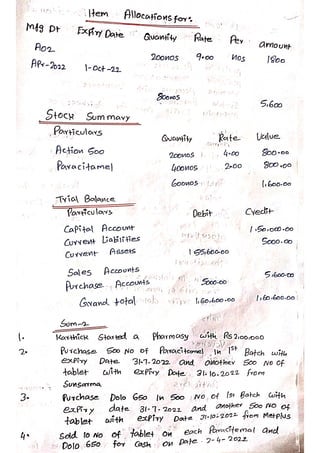 Item Allocations for:
Mfg Dt Expiry Date Quantity Rate Per amount
A02 200nos 9.00 nos 1800
Apr-2022 1-Oct-22
800nos 5,600
Stock Summary
Particulars Quantity Rate Value
Action 500 200nos 4.00 800.00
Paracitamel 400nos 2.00 800.00
600nos 1,600.00
Trial Balance
Particulars Debit Credit
Capital Account 1,50,000.00
Current Liabilities 5000.00
Current Assets 1,55,600.00
Sales Accounts 5,600.00
Purchase Accounts 5000.00
Grand total 1,60,600.00 1,60,600.00
Sum-2
1. Karthick Started a Pharmasy with Rs 2,00,000
2. Purchase 500 No of Paracitamol In 1st Batch with
expiry Date 31.7.2022 and another 500 No of
tablet with expiry Date 31.10.2022 from
Sunsarma
3. Purchase Dolo 650 In 500 No of 1st Batch with
expiry date 31-7-2022 and another 500 No of
tablet with expiry Date 31-10-2022 from Metplus
4. Sold 10 No of tablet on each Paracitemal and
Dolo 650 for Cash on Date 2-4-2022